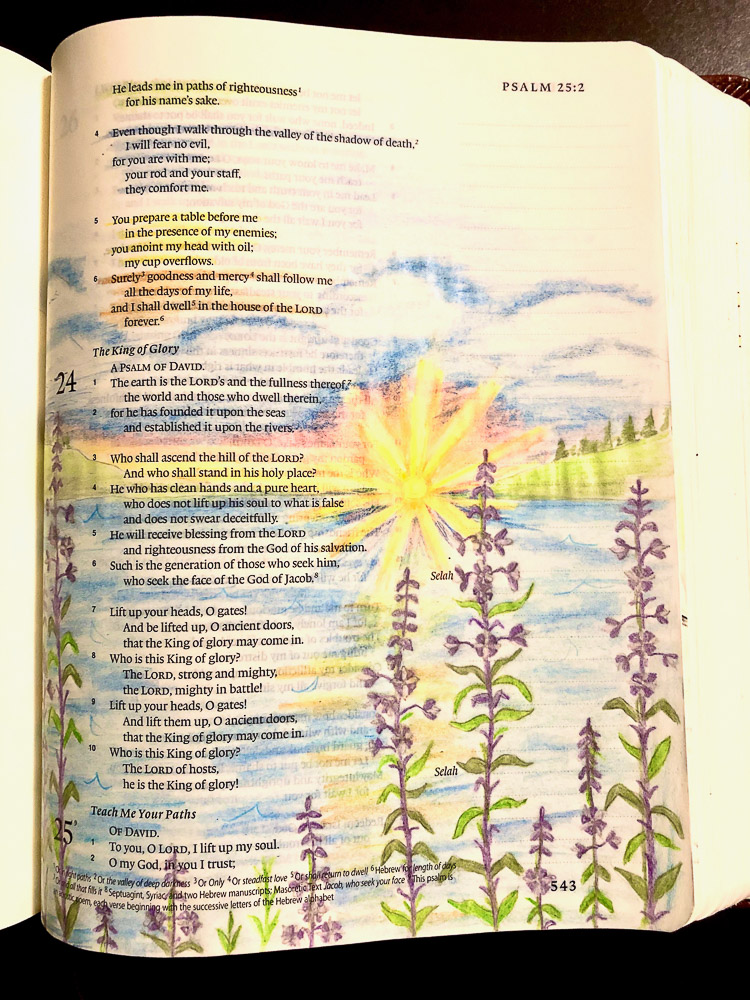 PSALM 25:2
He leads me in paths of righteousness¹
for his name's sake.
4 Even though I walk through the valley of the shadow of death,²
I will fear no evil,
for you are with me;
your rod and your staff,
they comfort me.
5 You prepare a table before me
in the presence of my enemies;
you anoint my head with oil;
my cup overflows.
6 Surely³ goodness and mercy⁴ shall follow me
all the days of my life,
and I shall dwell⁵ in the house of the LORD
forever.⁶
The King of Glory
24 A PSALM OF DAVID.
1 The earth is the LORD's and the fullness thereof,⁷
the world and those who dwell therein,
2 for he has founded it upon the seas
and established it upon the rivers.
3 Who shall ascend the hill of the LORD?
And who shall stand in his holy place?
4 He who has clean hands and a pure heart,
who does not lift up his soul to what is false
and does not swear deceitfully.
5 He will receive blessing from the LORD
and righteousness from the God of his salvation.
6 Such is the generation of those who seek him,
who seek the face of the God of Jacob.⁸ Selah
7 Lift up your heads, O gates!
And be lifted up, O ancient doors,
that the King of glory may come in.
8 Who is this King of glory?
The LORD, strong and mighty,
the LORD, mighty in battle!
9 Lift up your heads, O gates!
And lift them up, O ancient doors,
that the King of glory may come in.
10 Who is this King of glory?
The LORD of hosts,
he is the King of glory! Selah
Teach Me Your Paths
25⁹ OF DAVID.
1 To you, O LORD, I lift up my soul.
2 O my God, in you I trust;
paths ² Or the valley of deep darkness ³ Or Only ⁴ Or steadfast love ⁵ Or shall return to dwell ⁶ Hebrew for length of days
all that fills it ⁸ Septuagint, Syriac, and two Hebrew manuscripts; Masoretic Text Jacob, who seek your face ⁹ This psalm is
poem, each verse beginning with the successive letters of the Hebrew alphabet
543